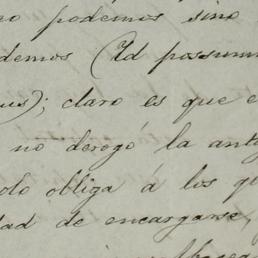 podemos sino
demos (Id possum
us); claro es que e
no derogó la ant
olo obliga á los qu
dad de encargarse,